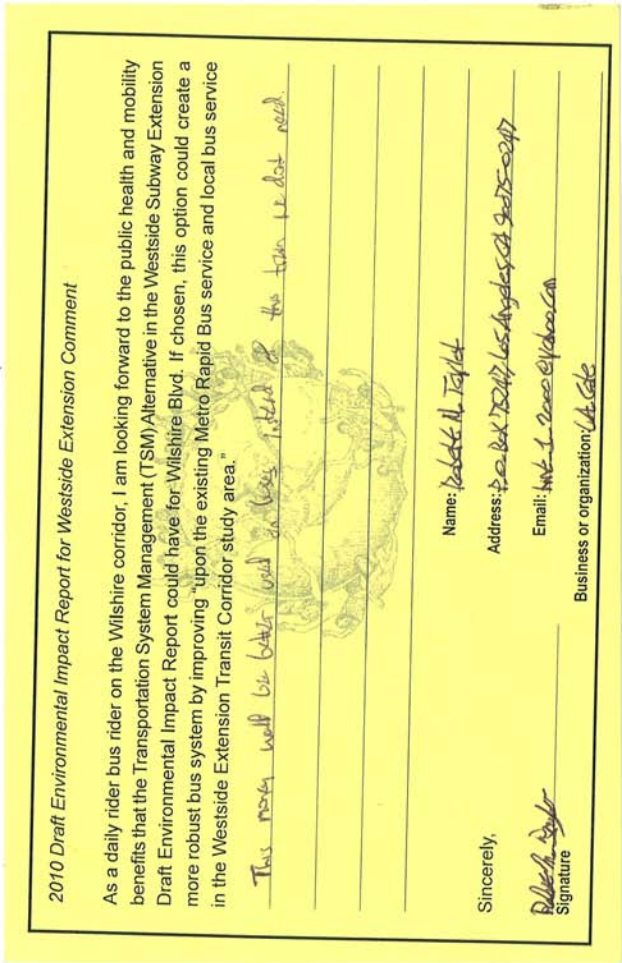 2010 Draft Environmental Impact Report for Westside Extension Comment
As a daily rider bus rider on the Wilshire corridor, I am looking forward to the public health and mobility
benefits that the Transportation System Management (TSM) Alternative in the Westside Subway Extension
Draft Environmental Impact Report could have for Wilshire Blvd. If chosen, this option could create a
more robust bus system by improving "upon the existing Metro Rapid Bus service and local bus service
in the Westside Extension Transit Corridor study area."
This money would be better used on buses instead of this train we dont need.
Name: M. Taylor
Address: P.O. Box 75247, Los Angeles, CA 90075-0247
Email: @yahoo.com
Business or organization:
Sincerely,
Signature